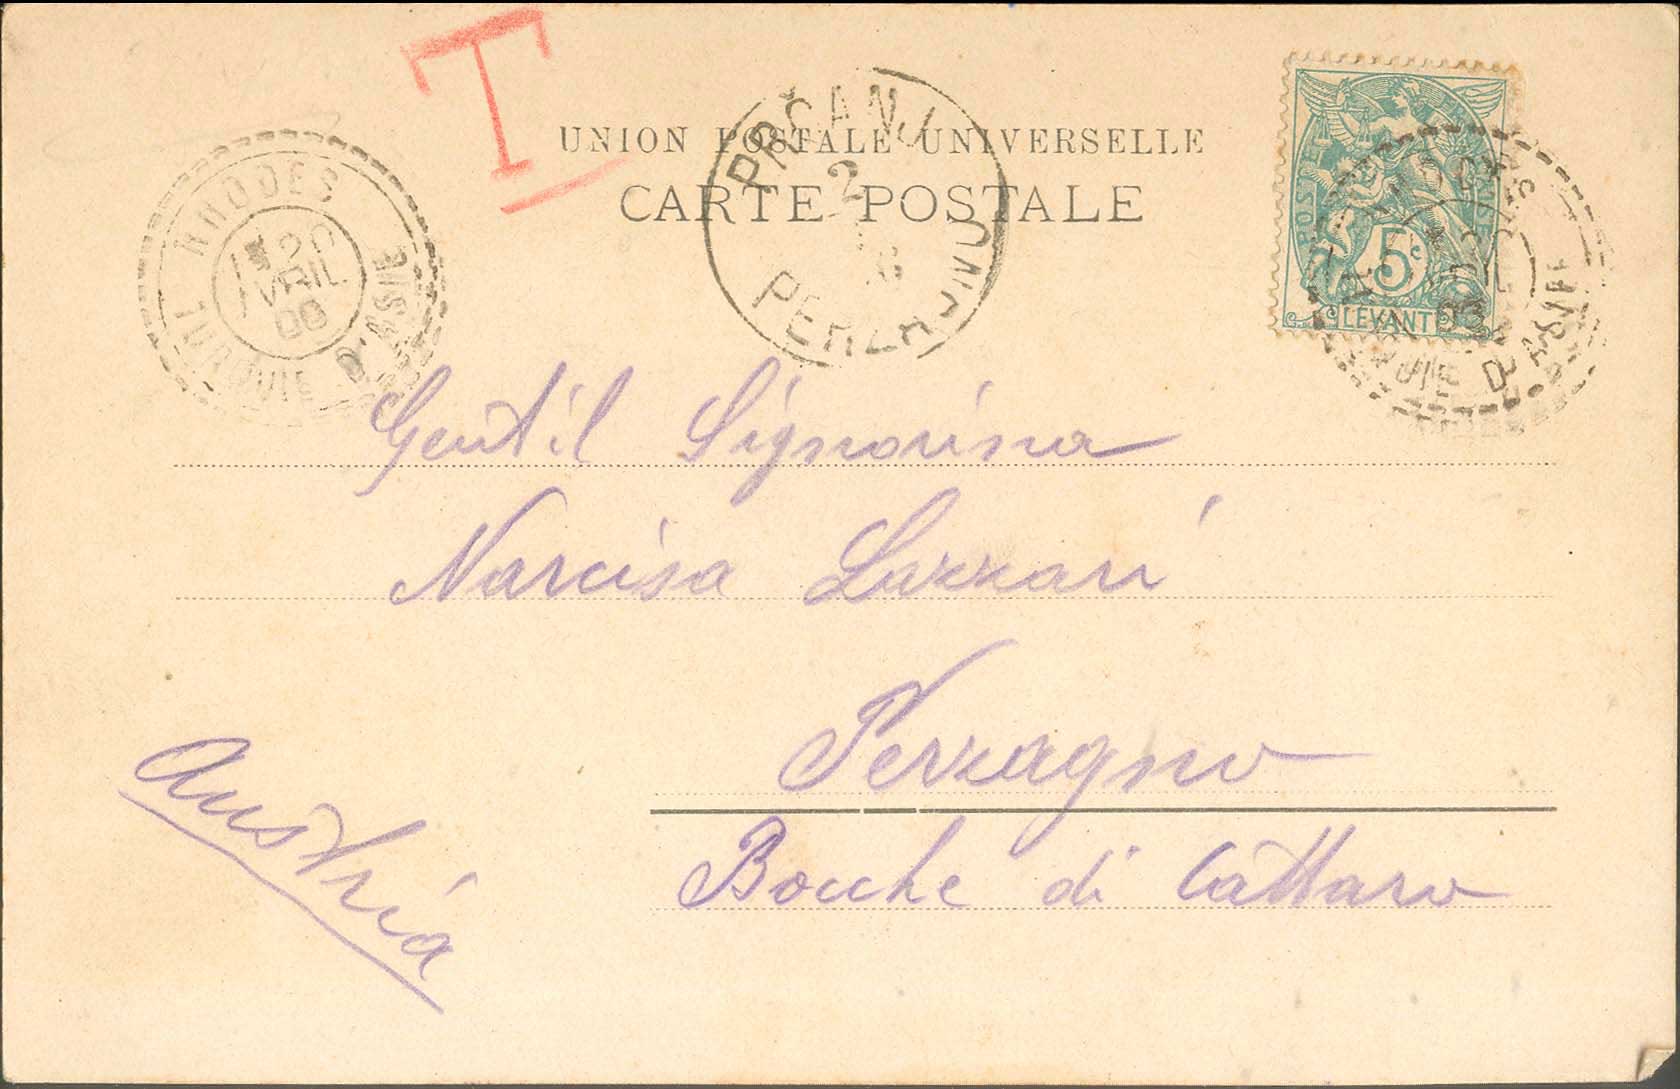 T
UNION POSTALE UNIVERSELLE
CARTE POSTALE
RHODES
20
AVRIL
06
TURQUIE D'ASIE
PRČANJ
2
6
PERZAGNO
POSTE
5c
LEVANT
RHODES
TURQUIE D'ASIE
Gentil Signorina
Narcisa Luzzari
Perzagno
Bocche di Cattaro
Austria